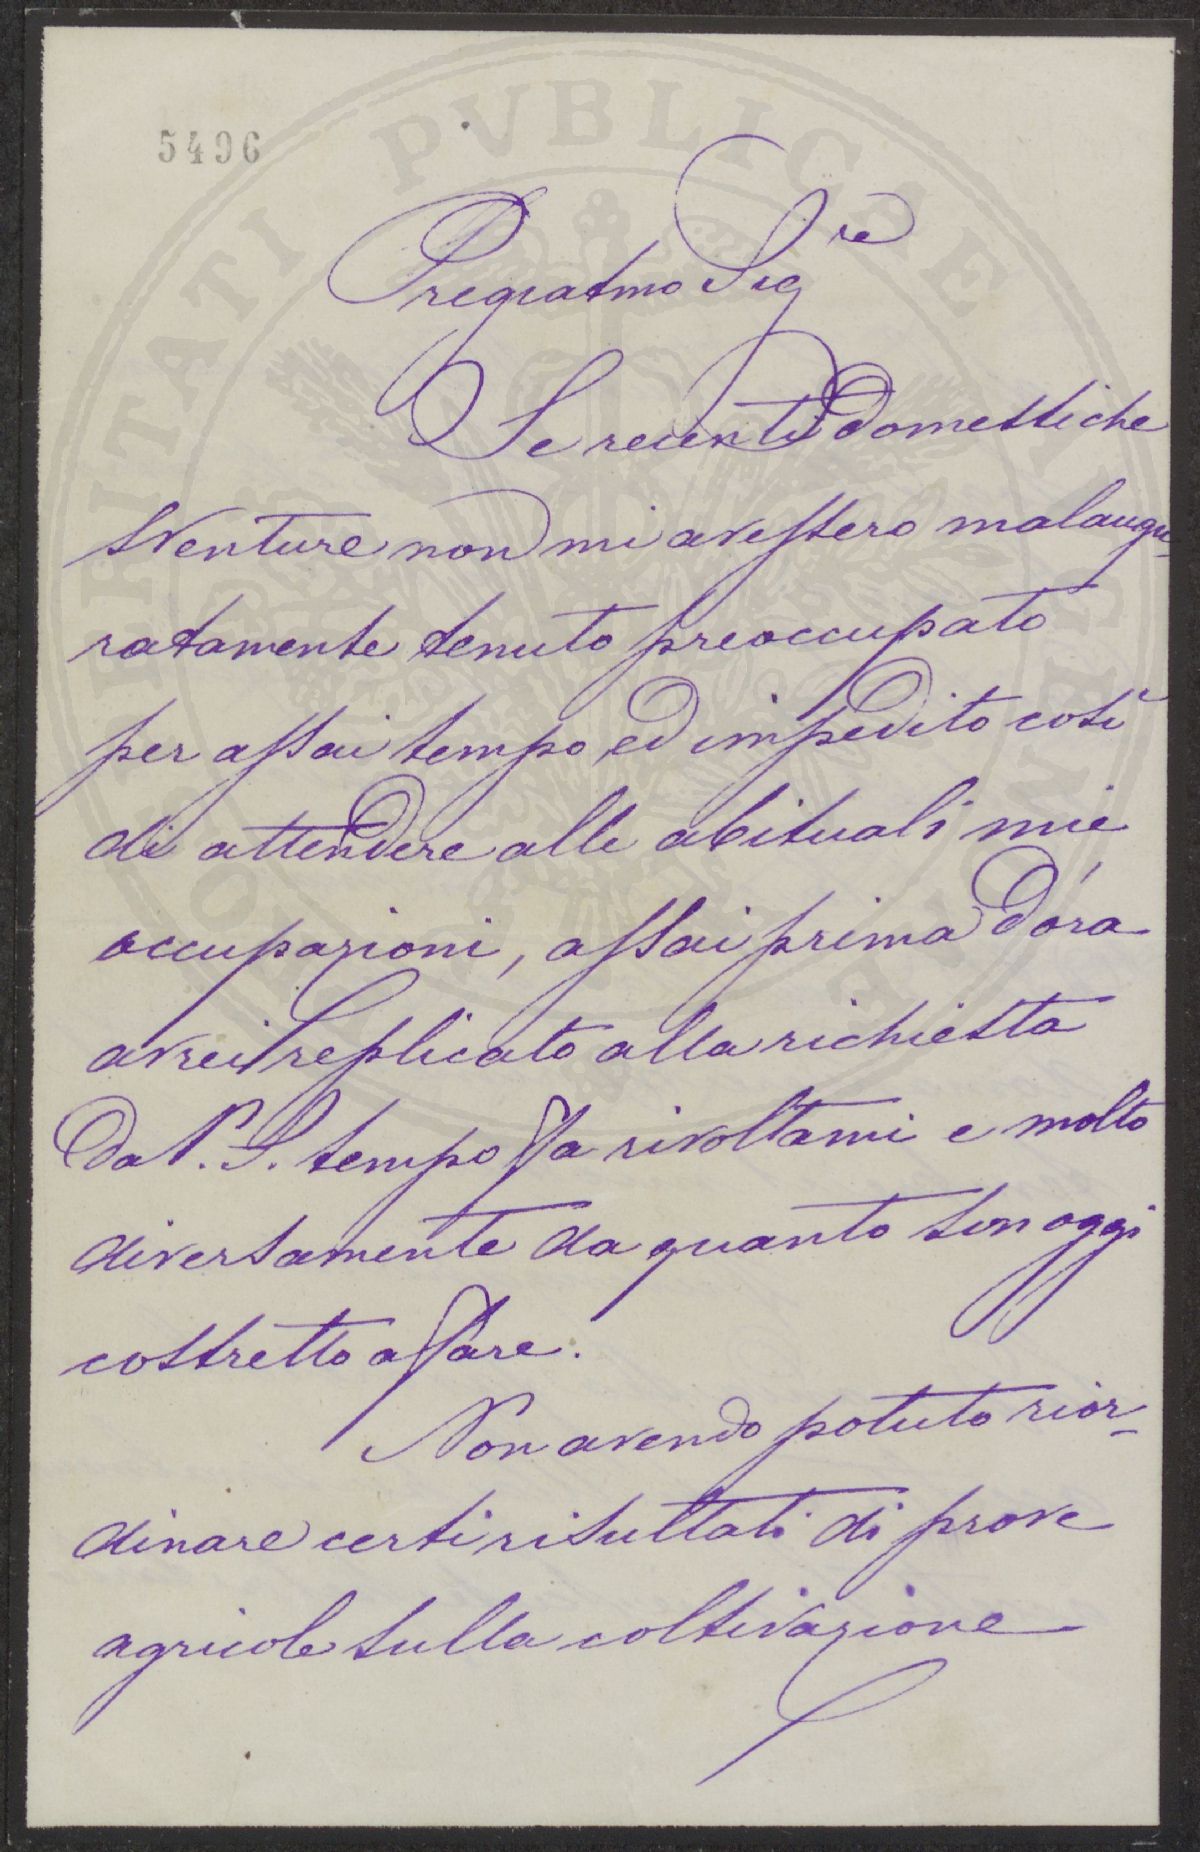 5496
Pregiatmo Sigre
Se recenti domestiche
sventure non mi avessero malaugu-
ratamente tenuto preoccupato
per assai tempo ed impedito così
di attendere alle abituali mie
occupazioni, assai prima d'ora
avrei replicato alla richiesta
da V. S. tempo fa rivoltami e molto
diversamente da quanto son oggi
costretto a fare.
Non avendo potuto rior-
dinare certi risultati di prove
agricole sulla coltivazione